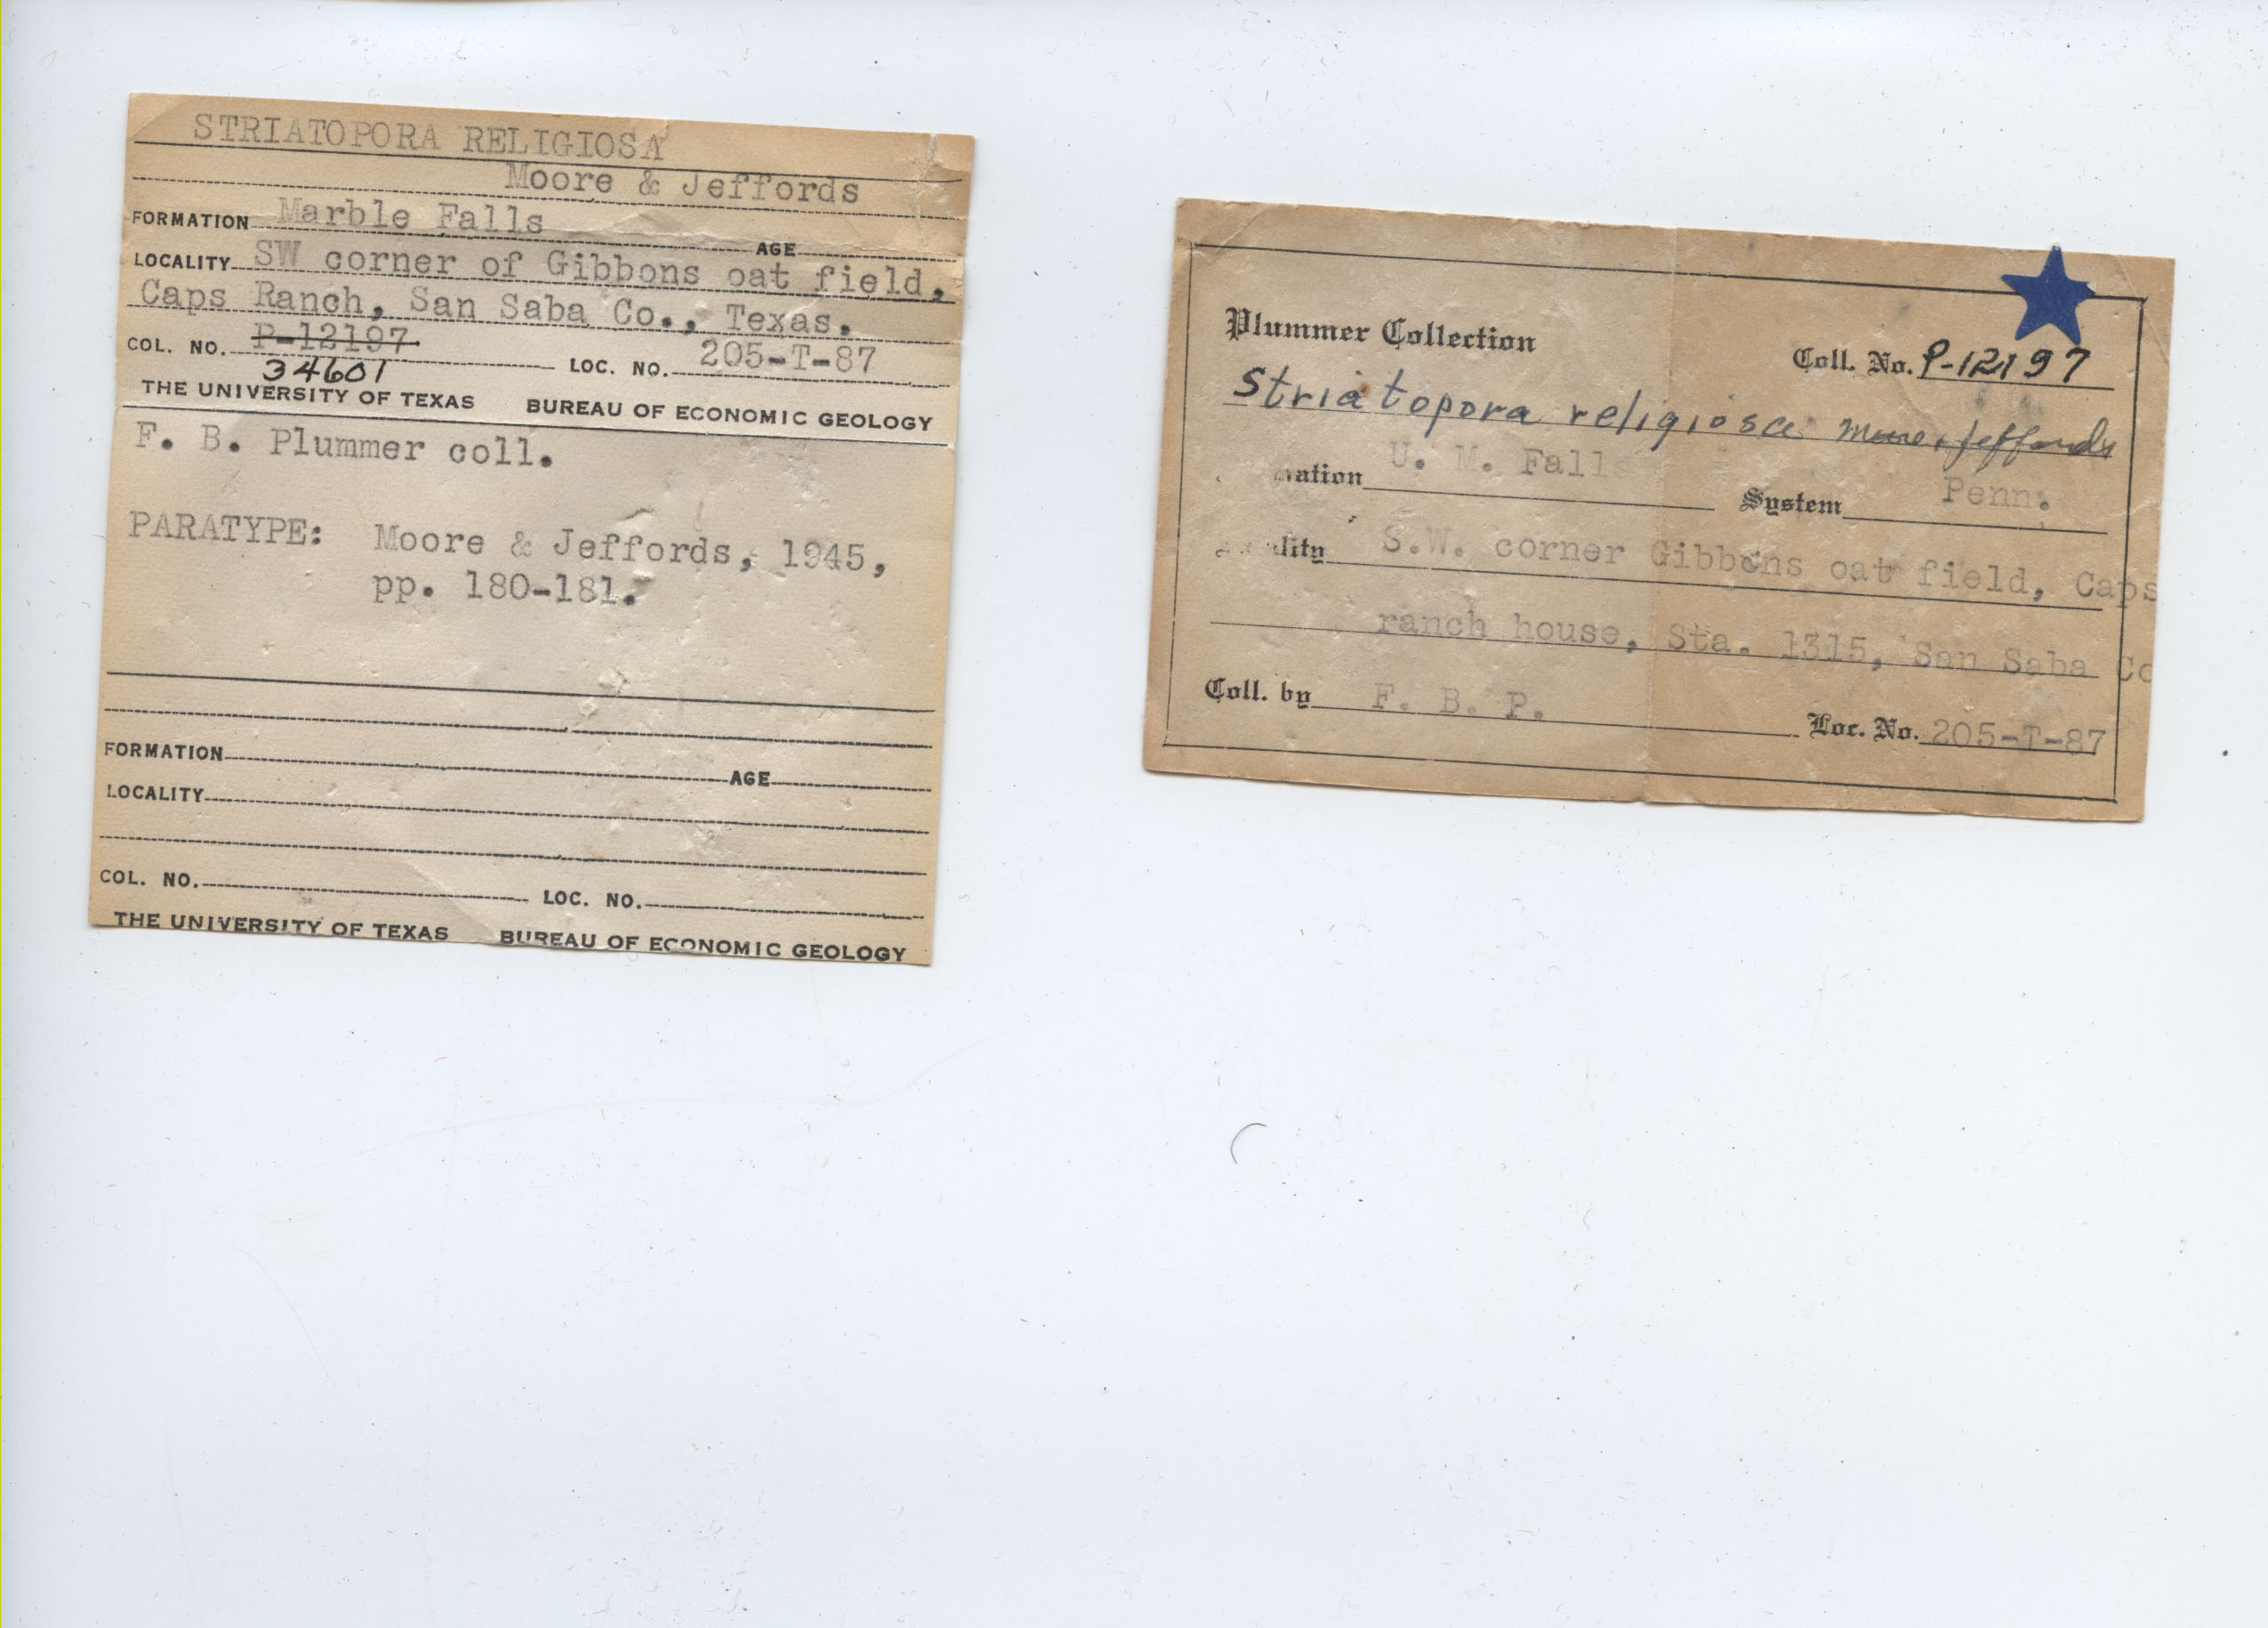 STRIATOPORA RELIGIOSA
Moore & Jeffords
FORMATION Marble Falls AGE
LOCALITY SW corner of Gibbons oat field,
Caps Ranch, San Saba Co., Texas.
COL. NO. P-12197 LOC. NO. 205-T-87
34601
THE UNIVERSITY OF TEXAS BUREAU OF ECONOMIC GEOLOGY
F. B. Plummer coll.
PARATYPE: Moore & Jeffords, 1945,
pp. 180-181.
FORMATION AGE
LOCALITY
COL. NO. LOC. NO.
THE UNIVERSITY OF TEXAS BUREAU OF ECONOMIC GEOLOGY
Plummer Collection Coll. No. P-12197
Striatopora religiosa Moore & Jeffords
mation U. M. Falls System Penn.
ality S.W. corner Gibbons oat field, Caps
ranch house, Sta. 1315, San Saba Co
Coll. by F. B. P. Loc. No. 205-T-87